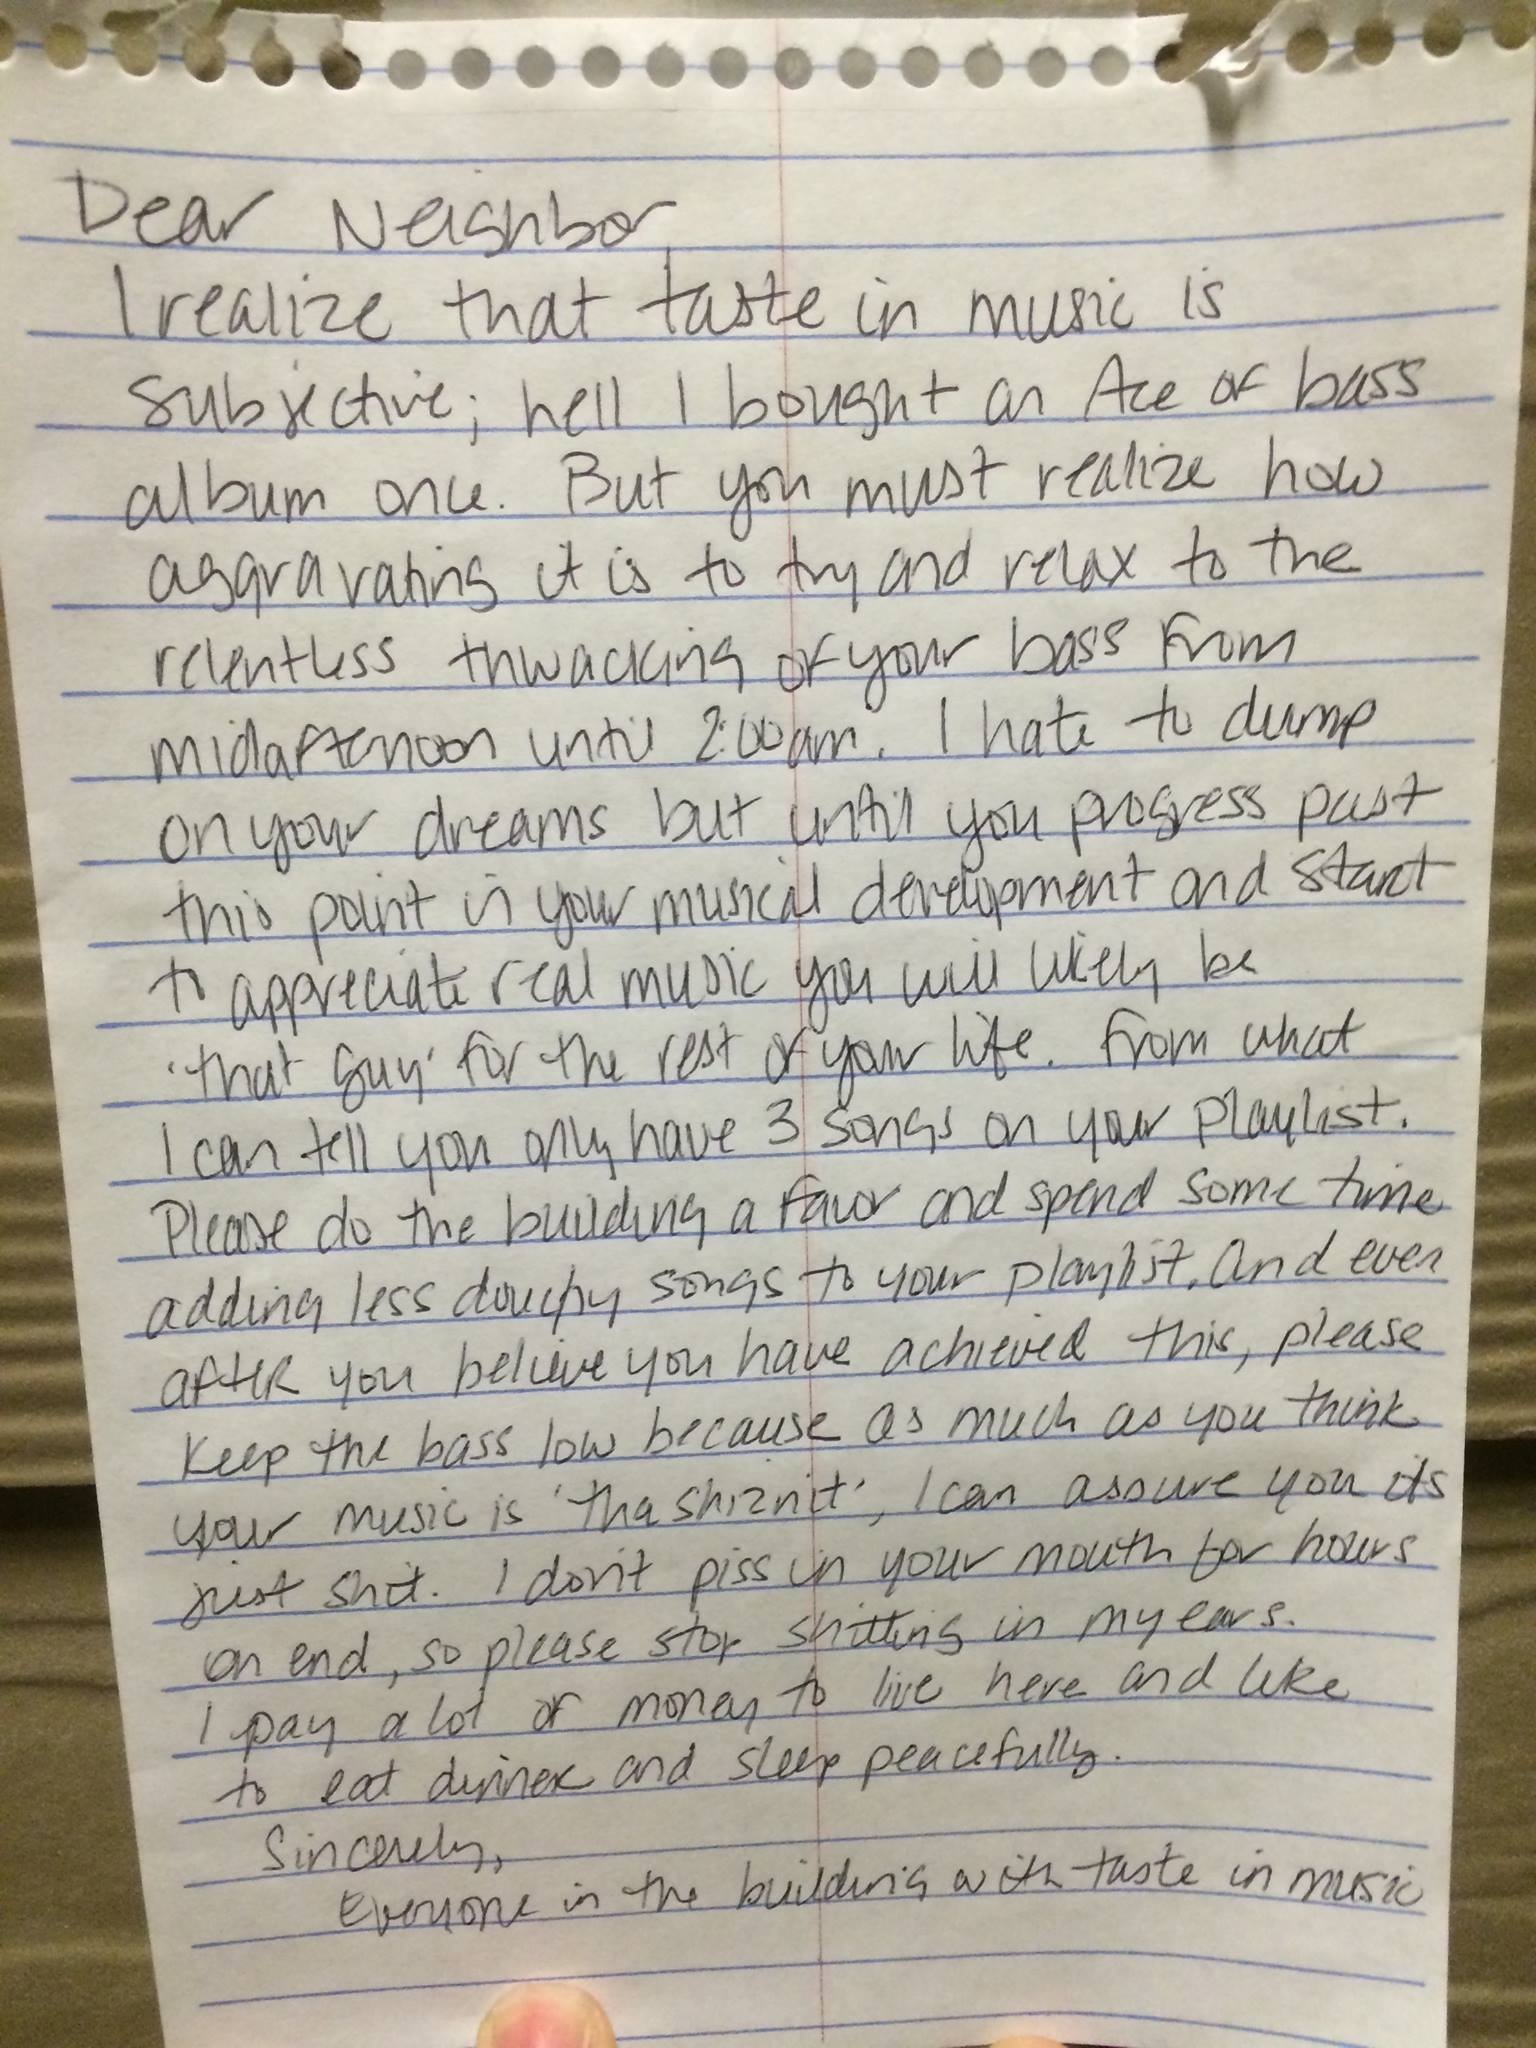 Dear Neighbor,
I realize that taste in music is
subjective; hell I bought an Ace of bass
album once. But you must realize how
aggravating it is to try and relax to the
relentless thwacking of your bass from
midafternoon until 2:00am. I hate to dump
on your dreams but until you progress past
this point in your musical development and start
to appreciate real music you will likely be
'that guy' for the rest of your life. From what
I can tell you only have 3 songs on your playlist.
Please do the building a favor and spend some time
adding less douchy songs to your playlist. And even
after you believe you have achieved this, please
keep the bass low because as much as you think
your music is 'tha shiznit', I can assure you its
just shit. I don't piss in your mouth for hours
on end, so please stop shitting in my ears.
I pay a lot of money to live here and like
to eat dinner and sleep peacefully.
Sincerely,
Everyone in the building with taste in music